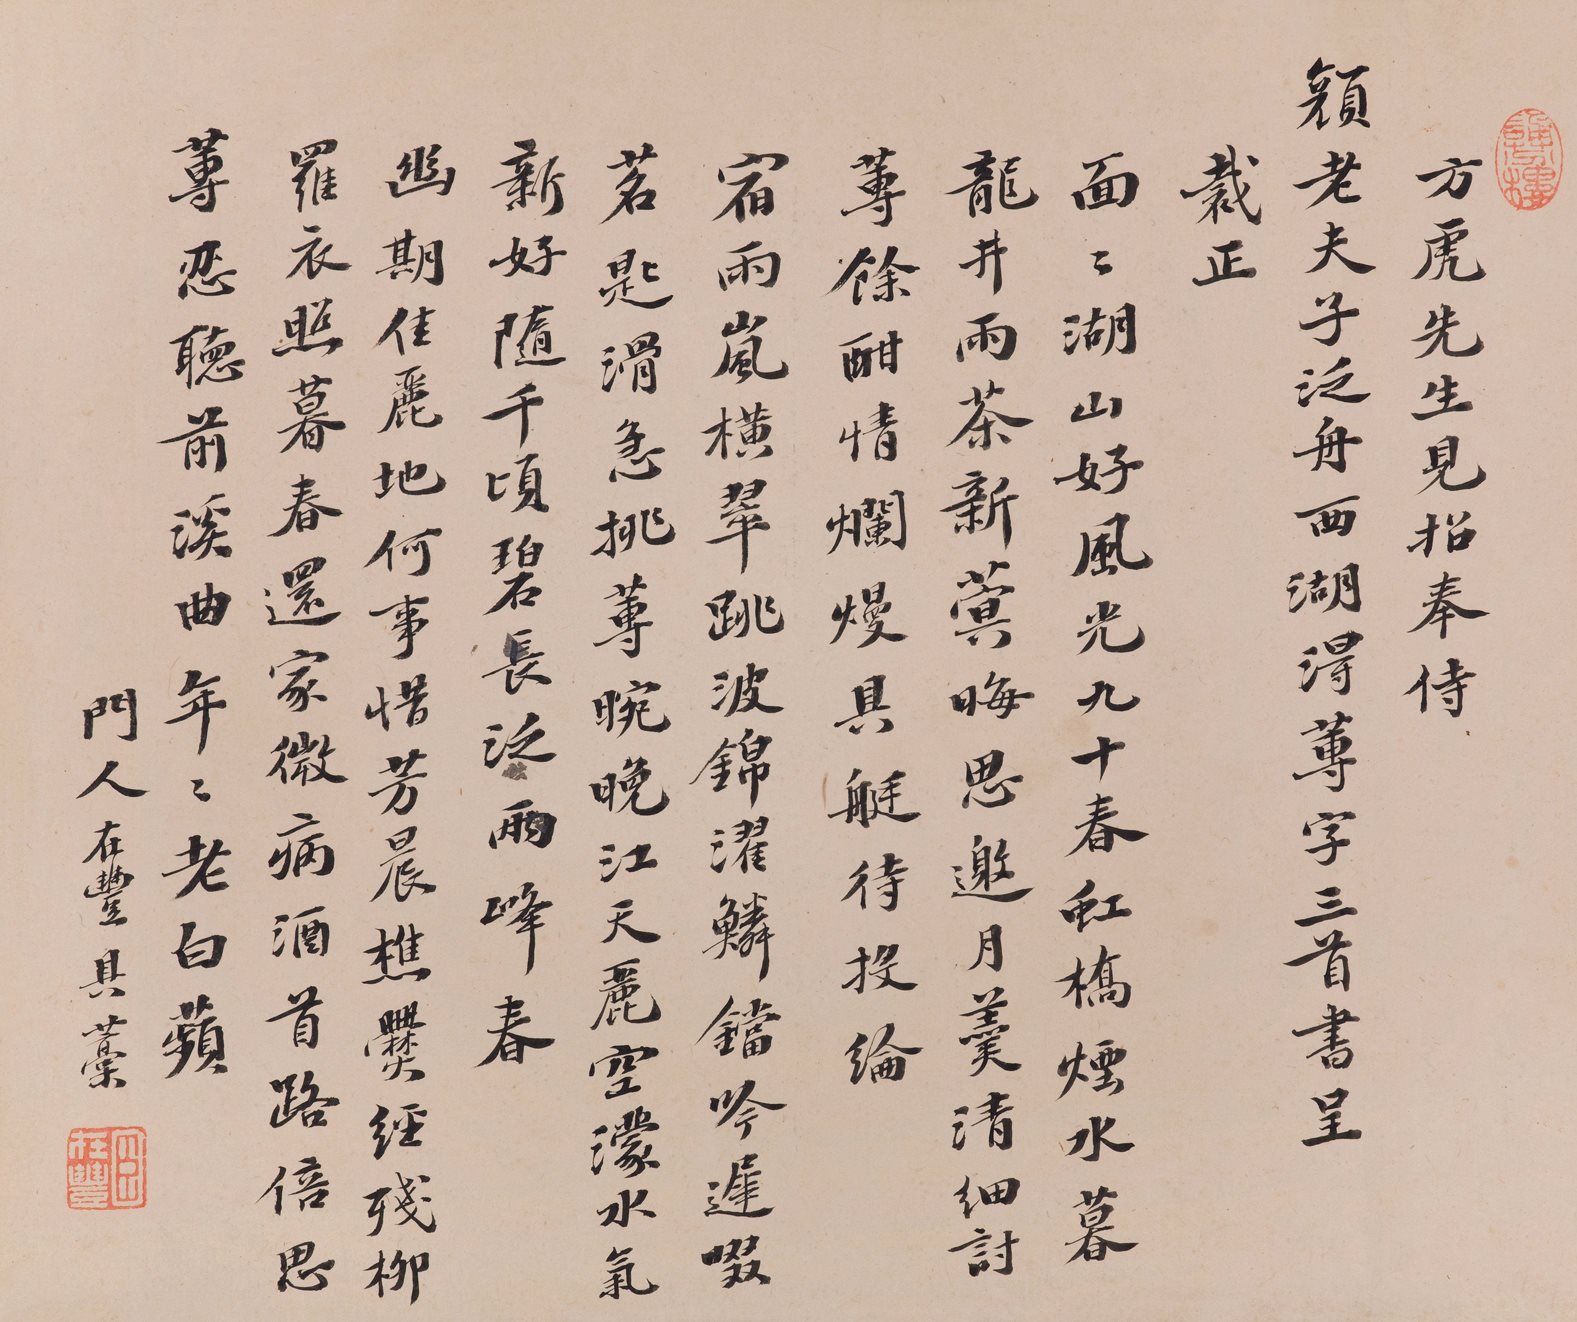 方虎先生見招奉侍
顔老夫子泛舟西湖淂蓴字三首書呈
裁正
面〻湖山好風光九十春虹橋煙水暮
龍井雨茶新蓂晦思邀月羹清細討
蓴餘酣情爛熳具艇待投綸
宿雨嵐橫翠跳波錦濯鱗鐺吟遲啜
茗匙滑急挑蓴晼晚江天麗空濛水氣
新好隨千頃碧長泛兩峰春
幽期佳麗地何事惜芳晨樵爨經殘柳
羅衣照暮春還家微病酒首路倍思
蓴忍聽前溪曲年〻老白蘋
門人在豐具藁